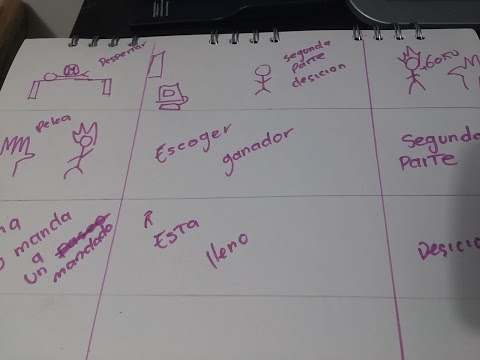 Despertar
segunda
parte
desicion
GOKU
Pelea
Escoger
ganador
Segunda
Parte
manda
a
un mandado
Esta
lleno